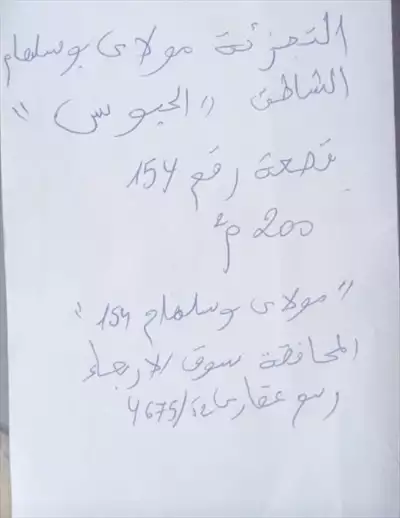 التجزئة مولاي بوسلهام
الشاطئ "الحبوس"
قطعة رقم 154
200 م²
"مولاي بوسلهام 154"
المحافظة سوق الاربعاء
رسم عقاري 4675/